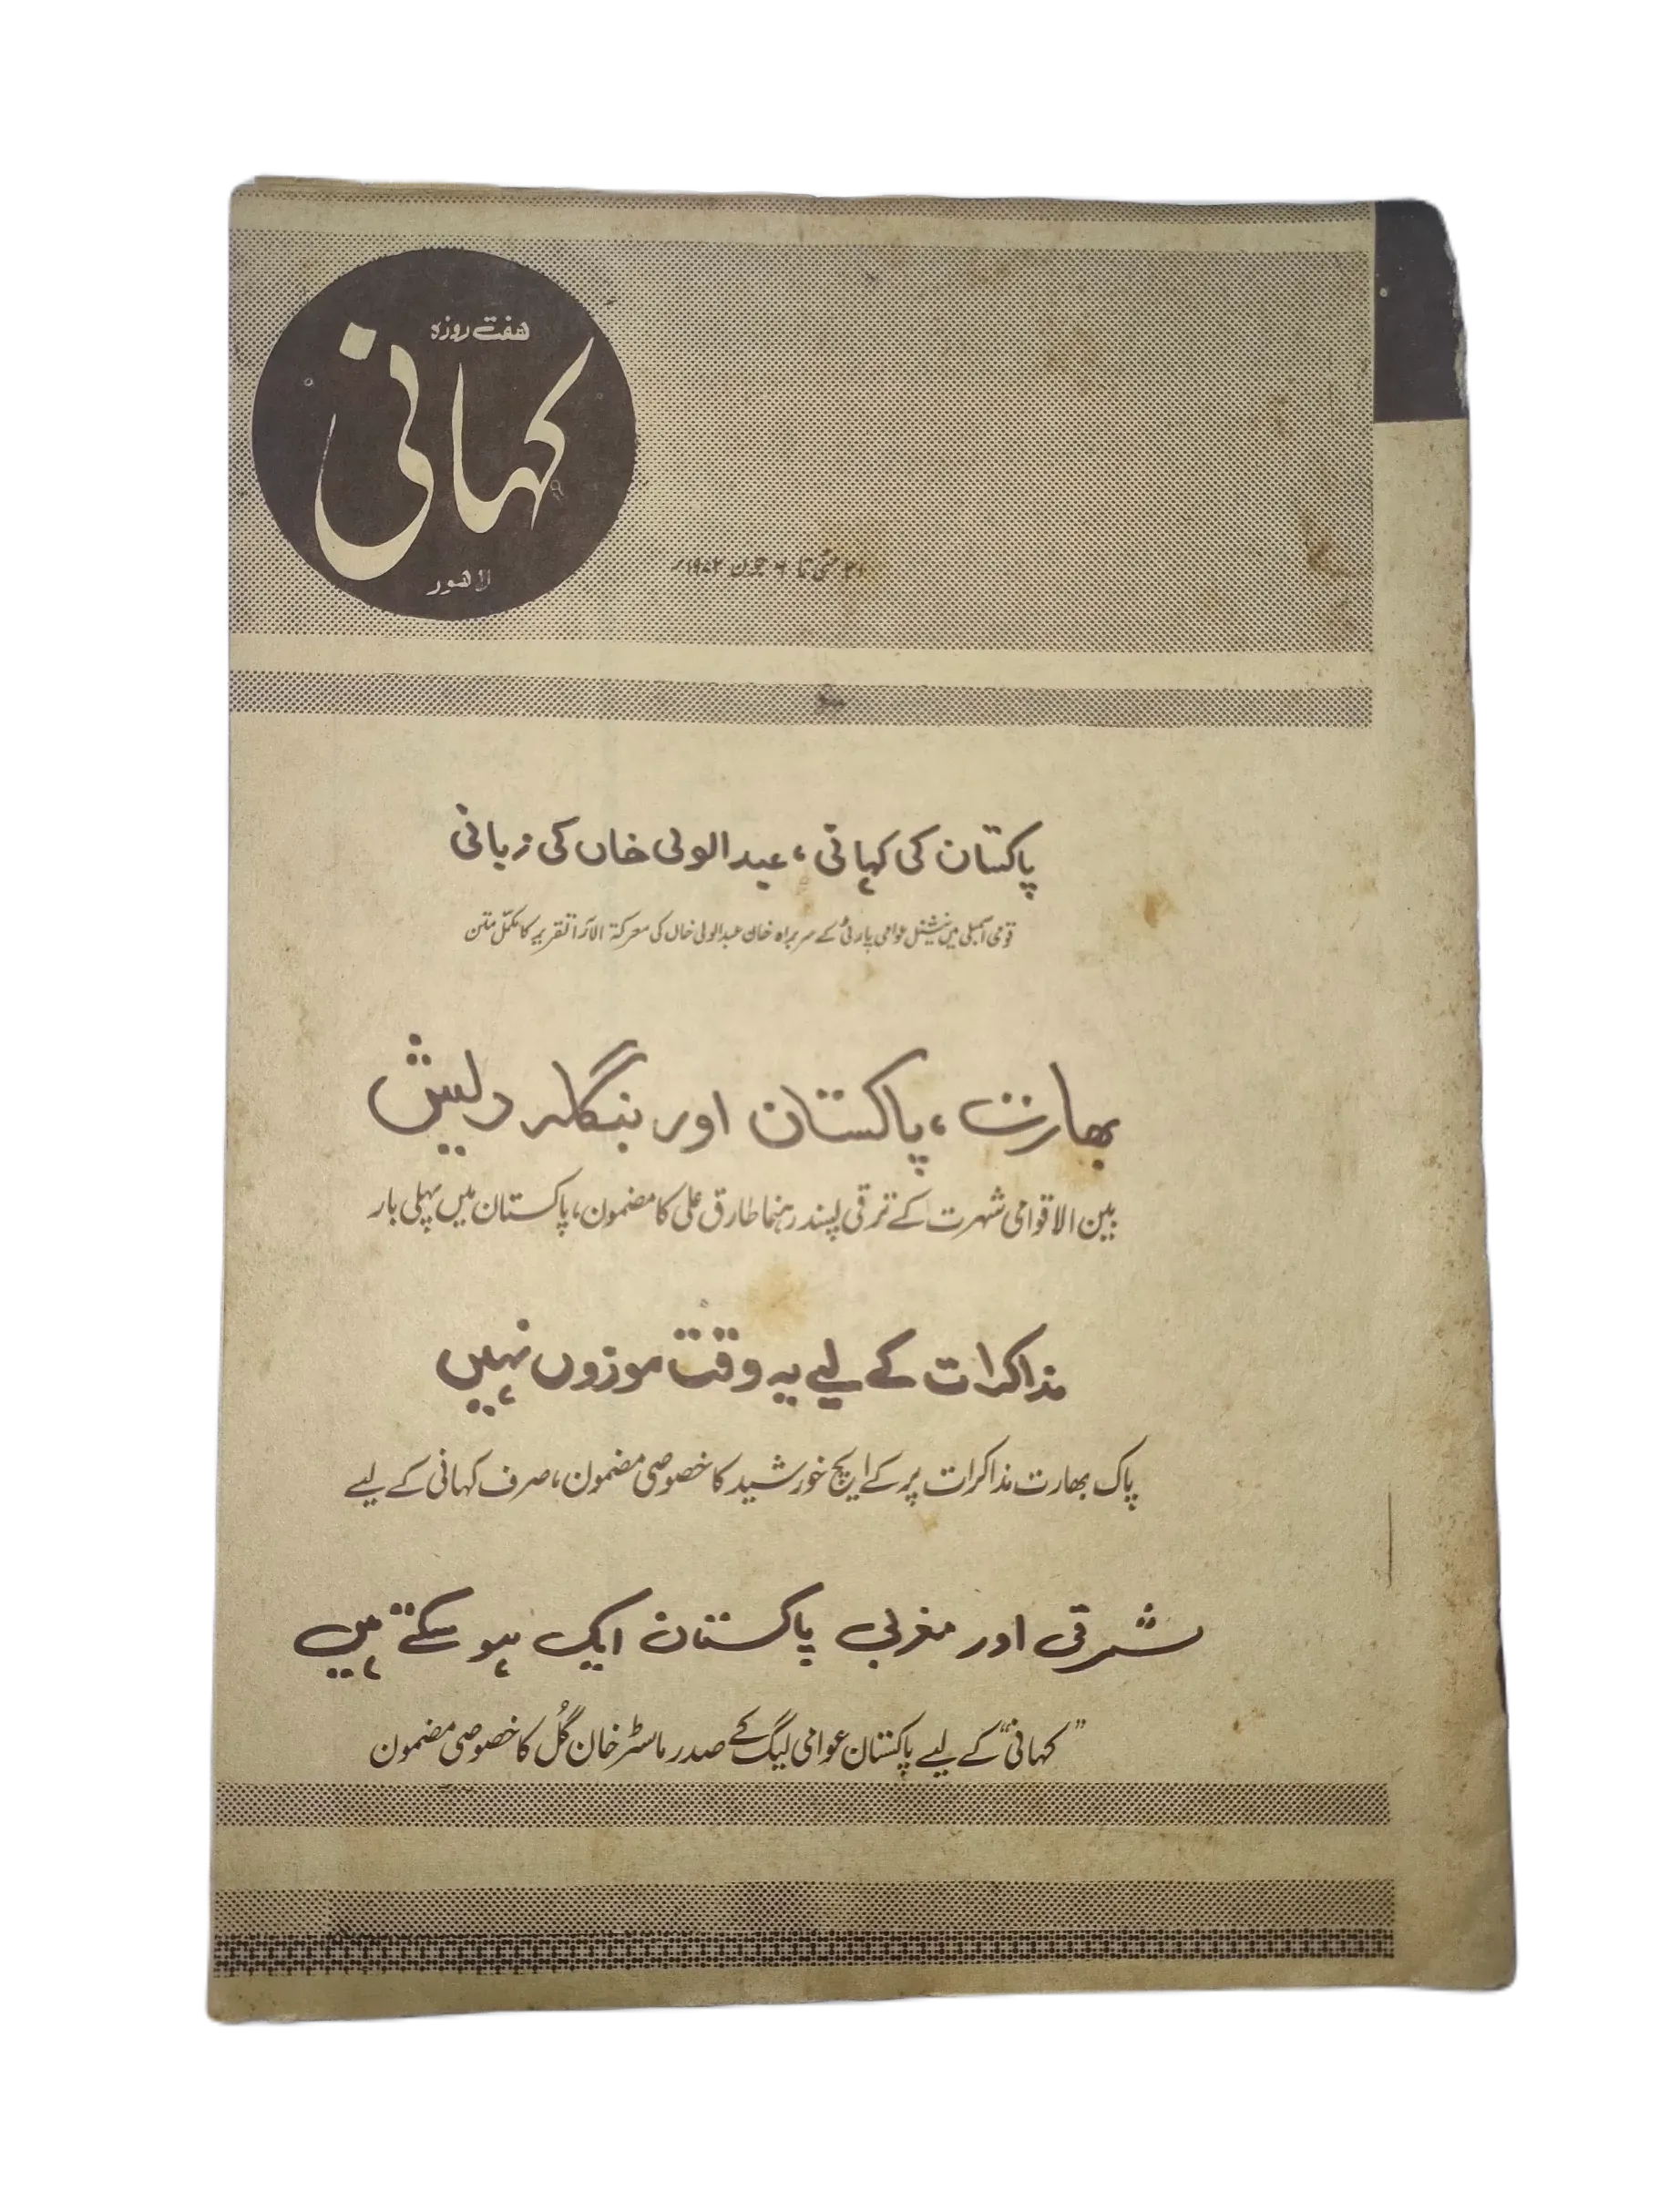 ہفت روزہ
کہانی
لاہور
مئی تا ۶ جون ۱۹۷۲ء
پاکستان کی کہانی، عبدالولی خاں کی زبانی
قومی اسمبلی میں نیشنل عوامی پارٹی کے سربراہ خان عبدالولی خاں کی معرکۃ الآرا تقریر کا مکمل متن
بھارت، پاکستان اور بنگلہ دیش
بین الاقوامی شہرت کے ترقی پسند رہنما طارق علی کا مضمون، پاکستان میں پہلی بار
مذاکرات کے لیے یہ وقت موزوں نہیں
پاک بھارت مذاکرات پر کے ایچ خورشید کا خصوصی مضمون، صرف کہانی کے لیے
مشرقی اور مغربی پاکستان ایک ہو سکتے ہیں
"کہانی" کے لیے پاکستان عوامی لیگ کے صدر ماسٹر خان گُل کا خصوصی مضمون